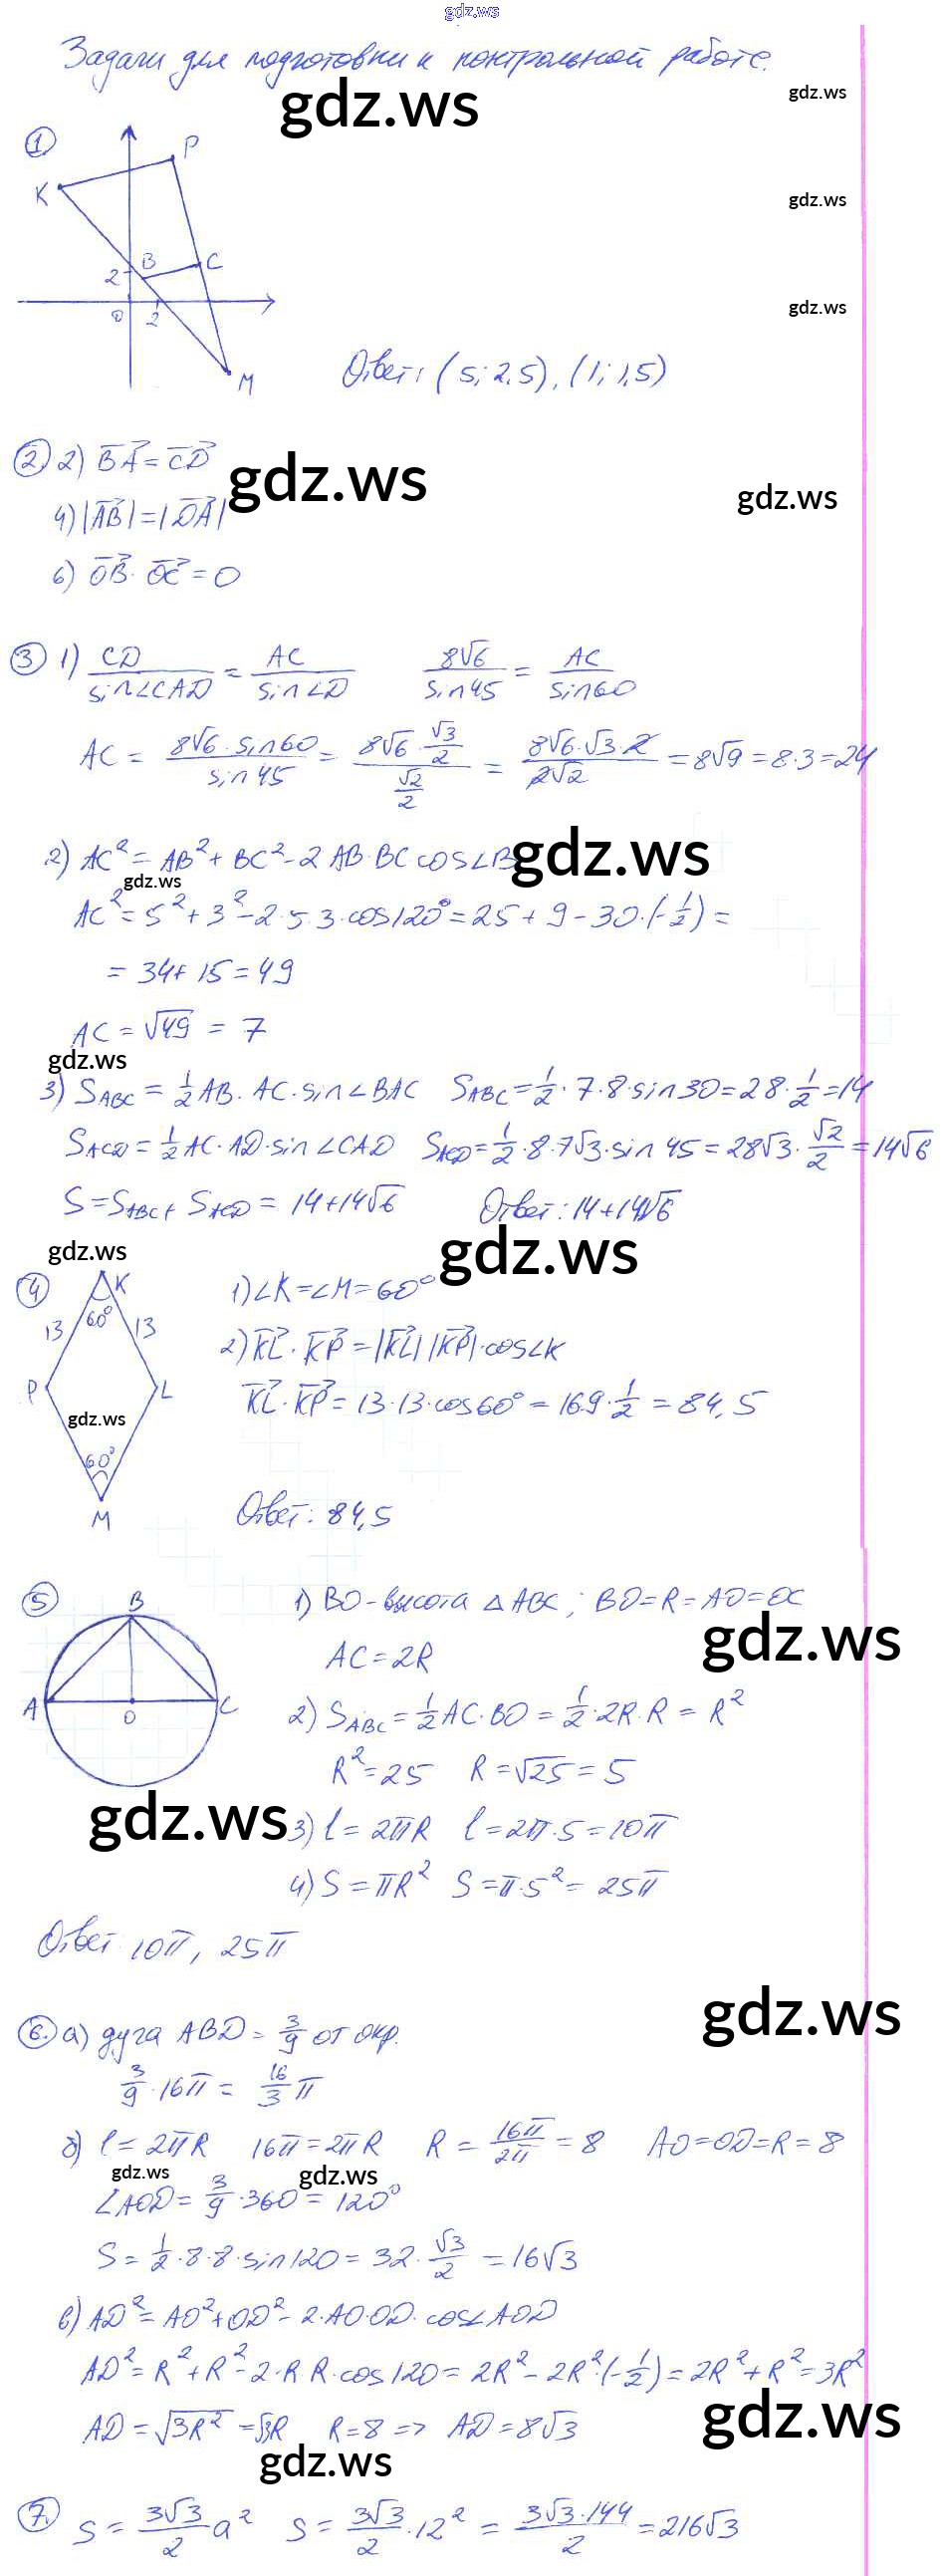 gdz.ws
Задачи для подготовки к контрольной работе.
gdz.ws
gdz.ws
① P
K
gdz.ws
B C
2
0 2
gdz.ws
M
Ответ: (5; 2,5), (1; 1,5)
② 2) B̅A̅ = C̅D̅
gdz.ws
gdz.ws
4) |A̅B̅| = |D̅A̅|
6) O̅B̅ · O̅C̅ = 0
③ 1) CD/sin∠CAD = AC/sin∠D 8√6/sin45 = AC/sin60
AC = 8√6 · sin60/sin45 = (8√6 · √3/2)/(√2/2) = 8√6·√3·2/2√2 = 8√9 = 8·3 = 24
2) AC² = AB² + BC² - 2AB·BC cos∠B
gdz.ws
gdz.ws
AC² = 5² + 3² - 2·5·3·cos120° = 25 + 9 - 30·(-1/2) =
= 34 + 15 = 49
AC = √49 = 7
gdz.ws
3) S_ABC = 1/2 AB · AC · sin∠BAC S_ABC = 1/2 · 7 · 8 · sin30 = 28 · 1/2 = 14
S_ACD = 1/2 AC · AD · sin∠CAD S_ACD = 1/2 · 8 · 7√3 · sin45 = 28√3 · √2/2 = 14√6
S = S_ABC + S_ACD = 14+14√6 Ответ: 14+14√6
gdz.ws
gdz.ws
④ K
60°
13 13
P L
gdz.ws
60°
M
1) ∠K = ∠M = 60°
2) K̅L̅ · K̅P̅ = |K̅L̅| |K̅P̅| · cos∠K
K̅L̅ · K̅P̅ = 13 · 13 · cos60° = 169 · 1/2 = 84,5
Ответ: 84,5
⑤ B
A O C
1) BO - высота △ABC; BO = R = AO = OC
gdz.ws
AC = 2R
2) S_ABC = 1/2 AC · BO = 1/2 · 2R · R = R²
R² = 25 R = √25 = 5
gdz.ws
3) l = 2πR l = 2π · 5 = 10π
4) S = πR² S = π · 5² = 25π
Ответ 10π, 25π
gdz.ws
⑥. а) дуга ABD = 3/9 от окр.
3/9 · 16π = 16/3 π
б) l = 2πR 16π = 2πR R = 16π/2π = 8 AO = OD = R = 8
gdz.ws
gdz.ws
∠AOD = 3/9 · 360 = 120°
S = 1/2 · 8 · 8 · sin120 = 32 · √3/2 = 16√3
в) AD² = AO² + OD² - 2·AO·OD · cos∠AOD
AD² = R² + R² - 2·R R · cos120 = 2R² - 2R²·(-1/2) = 2R² + R² = 3R²
gdz.ws
AD = √3R² = √3R R = 8 => AD = 8√3
gdz.ws
⑦. S = 3√3/2 a² S = 3√3/2 · 12² = 3√3·144/2 = 216√3